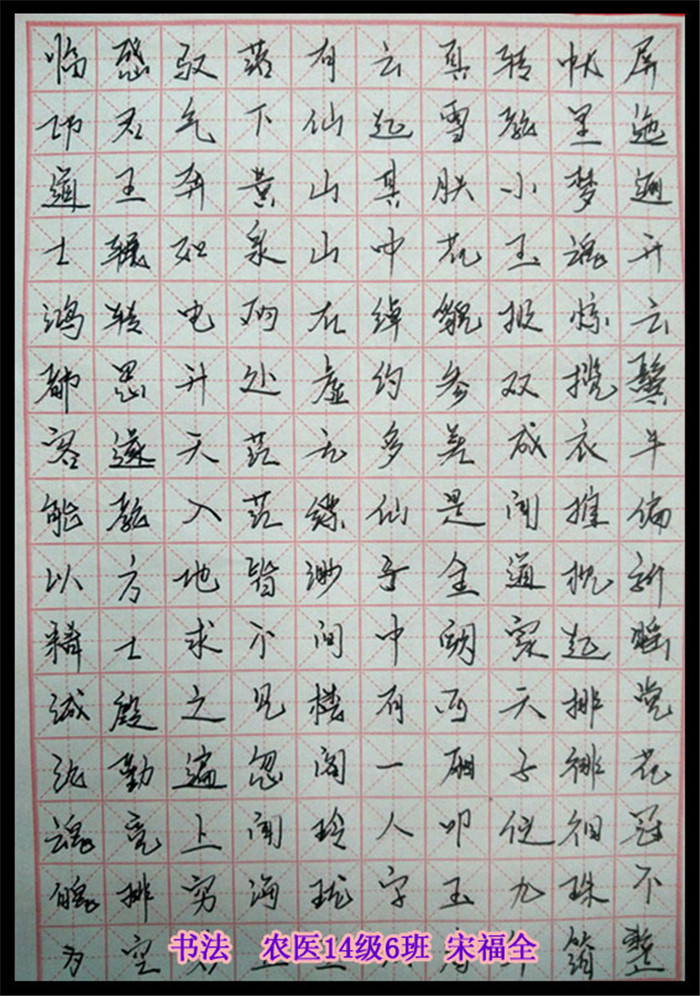 临邛道士鸿都客能以精诚致魂魄为
感君王辗转思遂教方士殷勤觅排空
驭气奔如电升天入地求之遍上穷
落下黄泉两处茫茫皆不见忽闻海
有仙山山在虚无缥渺间楼阁玲珑
云起其中绰约多仙子中有一人字
真雪肤花貌参差是金阙西厢叩玉
转教小玉报双成闻道家天子使九
帐里梦魂惊揽衣推枕起排徘徊珠箔
屏迤逦开云鬓半偏新睡觉花冠不整
书法 农医14级6班 宋福全